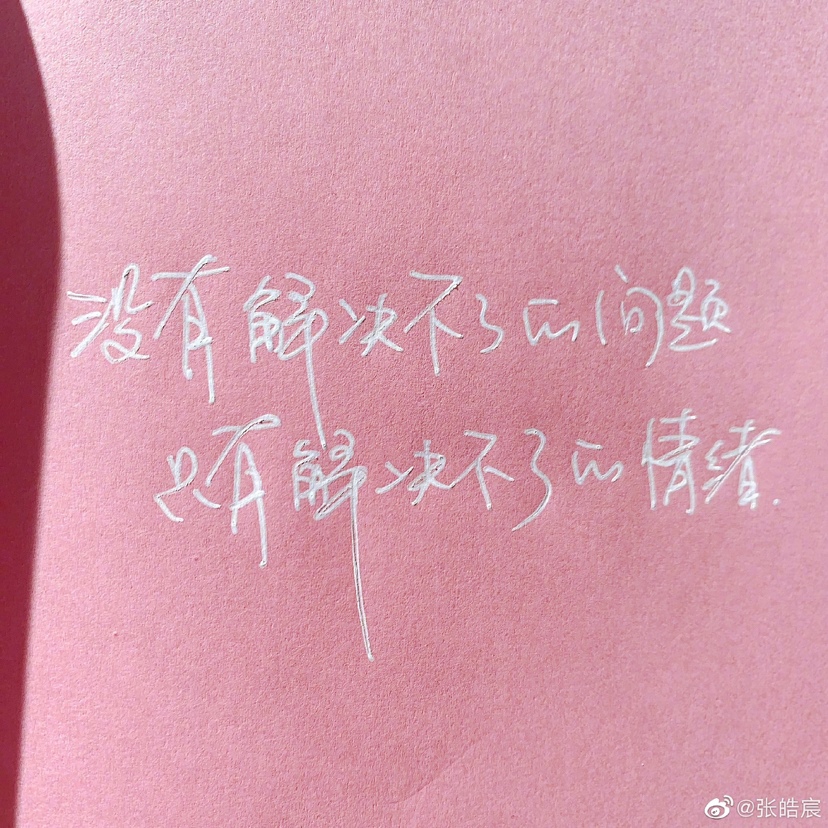 没有解决不了的问题
只有解决不了的情绪.
@张皓宸